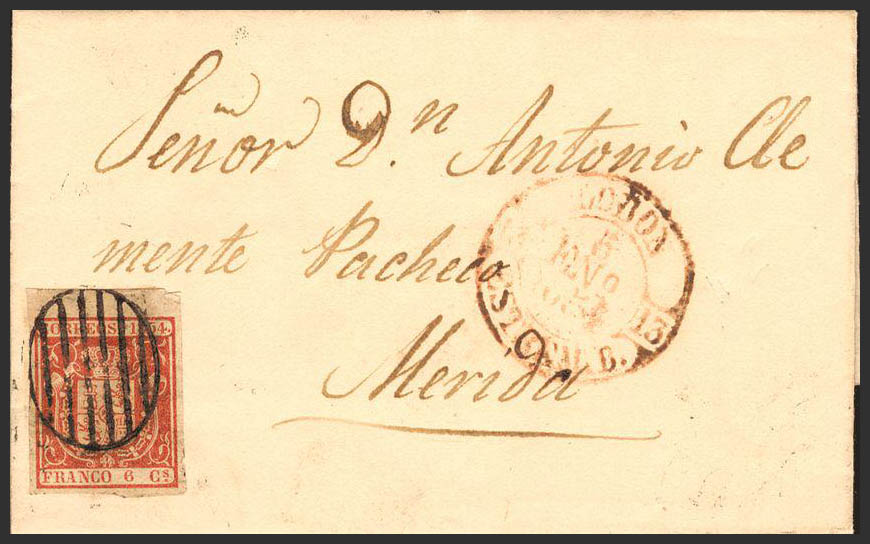 Señor D.n Antonio Cle
mente Pacheco
Merida
CORREOS. 1854.
FRANCO 6 Cs
5
ENO
B.